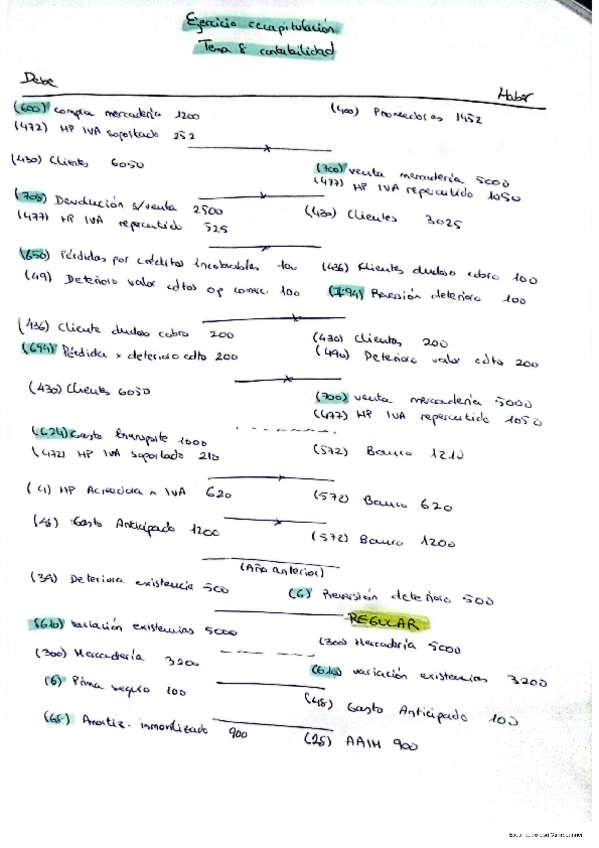 Ejercicio recapitulación
Tema 8 contabilidad
Debe Haber
(600) compra mercadería 1200 (400) Proveedores 1452
(472) HP IVA soportado 252
(430) Clientes 6050 (700) venta mercadería 5000
(477) HP IVA repercutido 1050
(708) Devolución s/venta 2500 (430) Clientes 3025
(477) HP IVA repercutido 525
(650) Pérdidas por créditos incobrables 100 (436) Clientes dudoso cobro 100
(49) Deterioro valor cdtos op comerc. 100 (794) Reversión deterioro 100
(436) Cliente dudoso cobro 200 (430) Clientes 200
(694) Pérdida x deterioro cdto 200 (490) Deterioro valor cdto 200
(430) Clientes 6050 (700) venta mercadería 5000
(477) HP IVA repercutido 1050
(624) Gasto transporte 1000 (572) Banco 1210
(472) HP IVA soportado 210
(4) HP Acreedora IVA 620 (572) Banco 620
(48) Gasto Anticipado 1200 (572) Banco 1200
(Año anterior)
(39) Deterioro existencia 500 (6) Reversión deterioro 500
REGULAR
(610) variación existencias 5000 (300) Mercadería 5000
(300) Mercadería 3200 (610) variación existencias 3200
(6) Prima seguro 100 (48) Gasto Anticipado 100
(68) Amortiz. inmovilizado 900 (28) AAIM 900